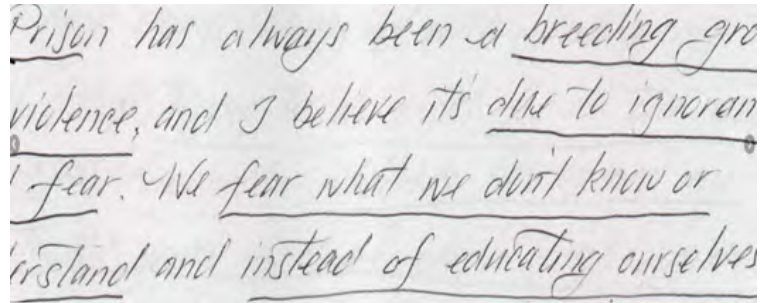 Prison has always been a breeding gro
violence, and I believe it's due to ignoran
fear. We fear what we don't know or
erstand and instead of educating ourselves